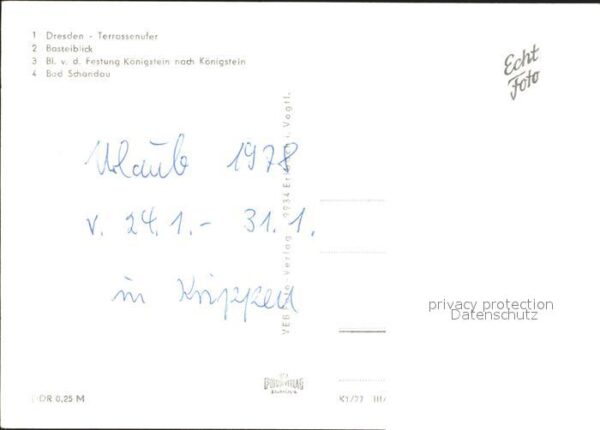 1 Dresden - Terrassenufer
2 Basteiblick
3 Bl. v. d. Festung Königstein nach Königstein
4 Bad Schandau
Echt
Foto
Urlaub 1978
v. 24.1. - 31.1.
in Krippen
VEB Verlag 9934 i. Vogtl.
privacy protection
Datenschutz
DDR 0,25 M
K1/77